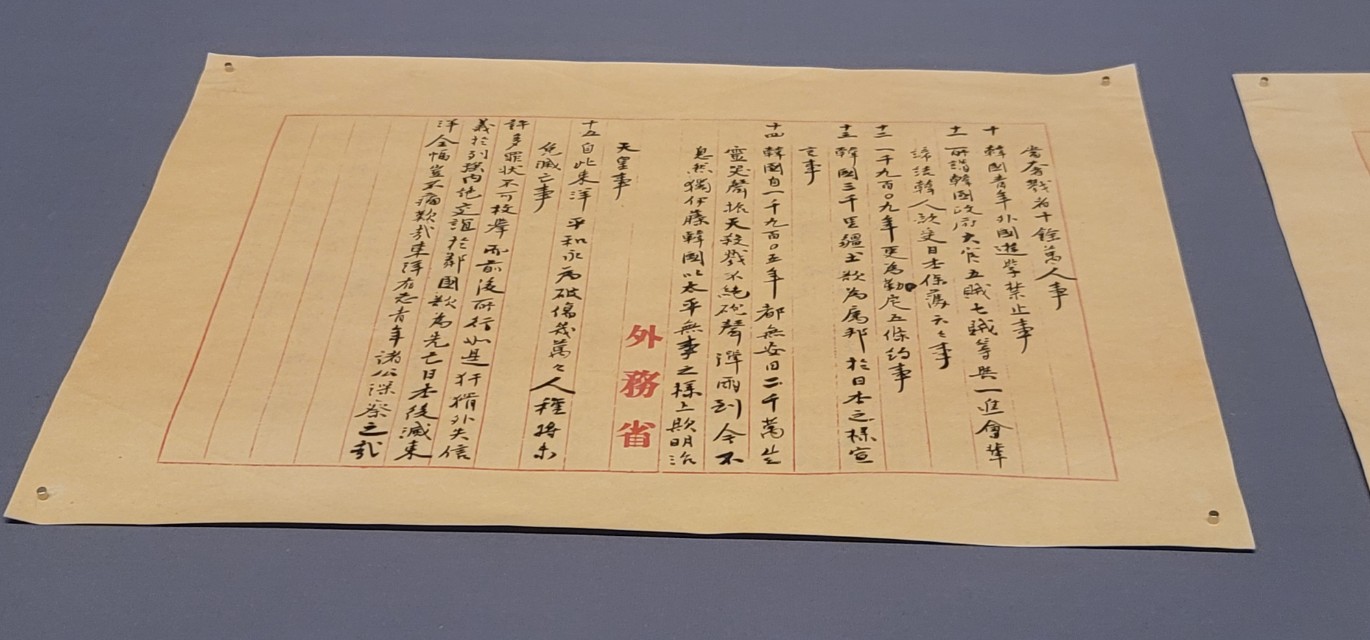 戮者十餘萬人事
十 韓國青年外國遊學禁止事
十一 所謂韓國政府大官五賊七賊等與一進會輩
締結韓人欲受日本保護云々事
十二 一千九百〇九年更為勒定五條約事
十三 韓國三千里疆土欲為属邦於日本之樣宣
言事
十四 韓國自一千九百〇五年都無安日二千萬生
靈哭聲振天殺戮不絶砲聲彈雨到今不
息然獨伊藤韓國以太平無事之樣上欺明治
天皇事
外務省
十五 自此東洋平和永為破傷幾萬々人種將未
免滅亡事
許多罪状不可枚擧而前後所行如是奸猾外失信
義於列强內絶交誼於鄰國欲為先亡日本後滅東
洋全幅豈不痛歎哉東洋有志青年諸公深察之哉